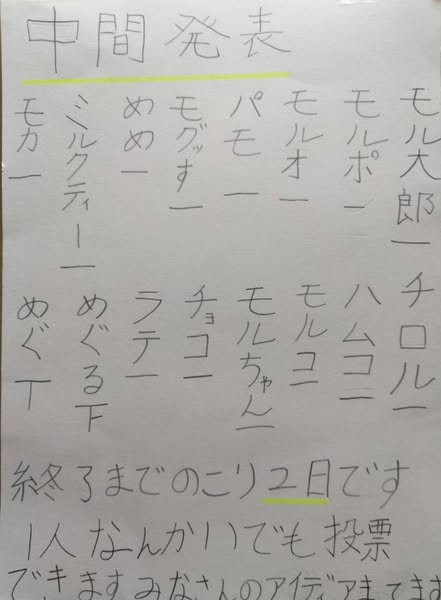 中間発表
モル大郎一
モルポ一
モルオ一
パモ一
モグッす一
めめ一
ミルクティー一
モカ一
チロル一
ハムコ一
モルコ一
モルちゃん一
チョコ一
ラテ一
めぐる下
めぐ丅
終了までのこり2日です
1人なんかいでも投票
できますみなさんのアイデアまてます